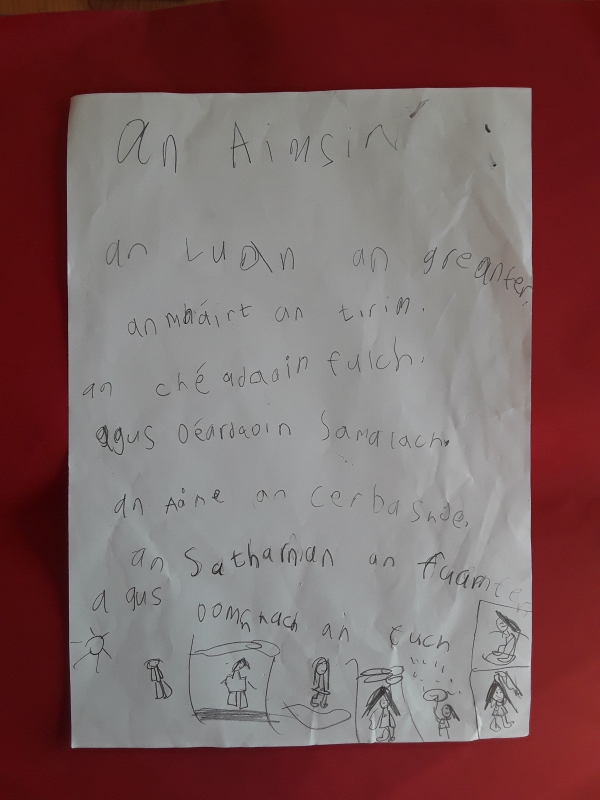 an Aimsir
an Luan an greanter.
an mháirt an tirim.
an ché adaoin fulch.
agus Déardaoin Samalach.
an Aóne an cerbasnde.
an Satharnan an fuamter
agus Domhnach an tuch